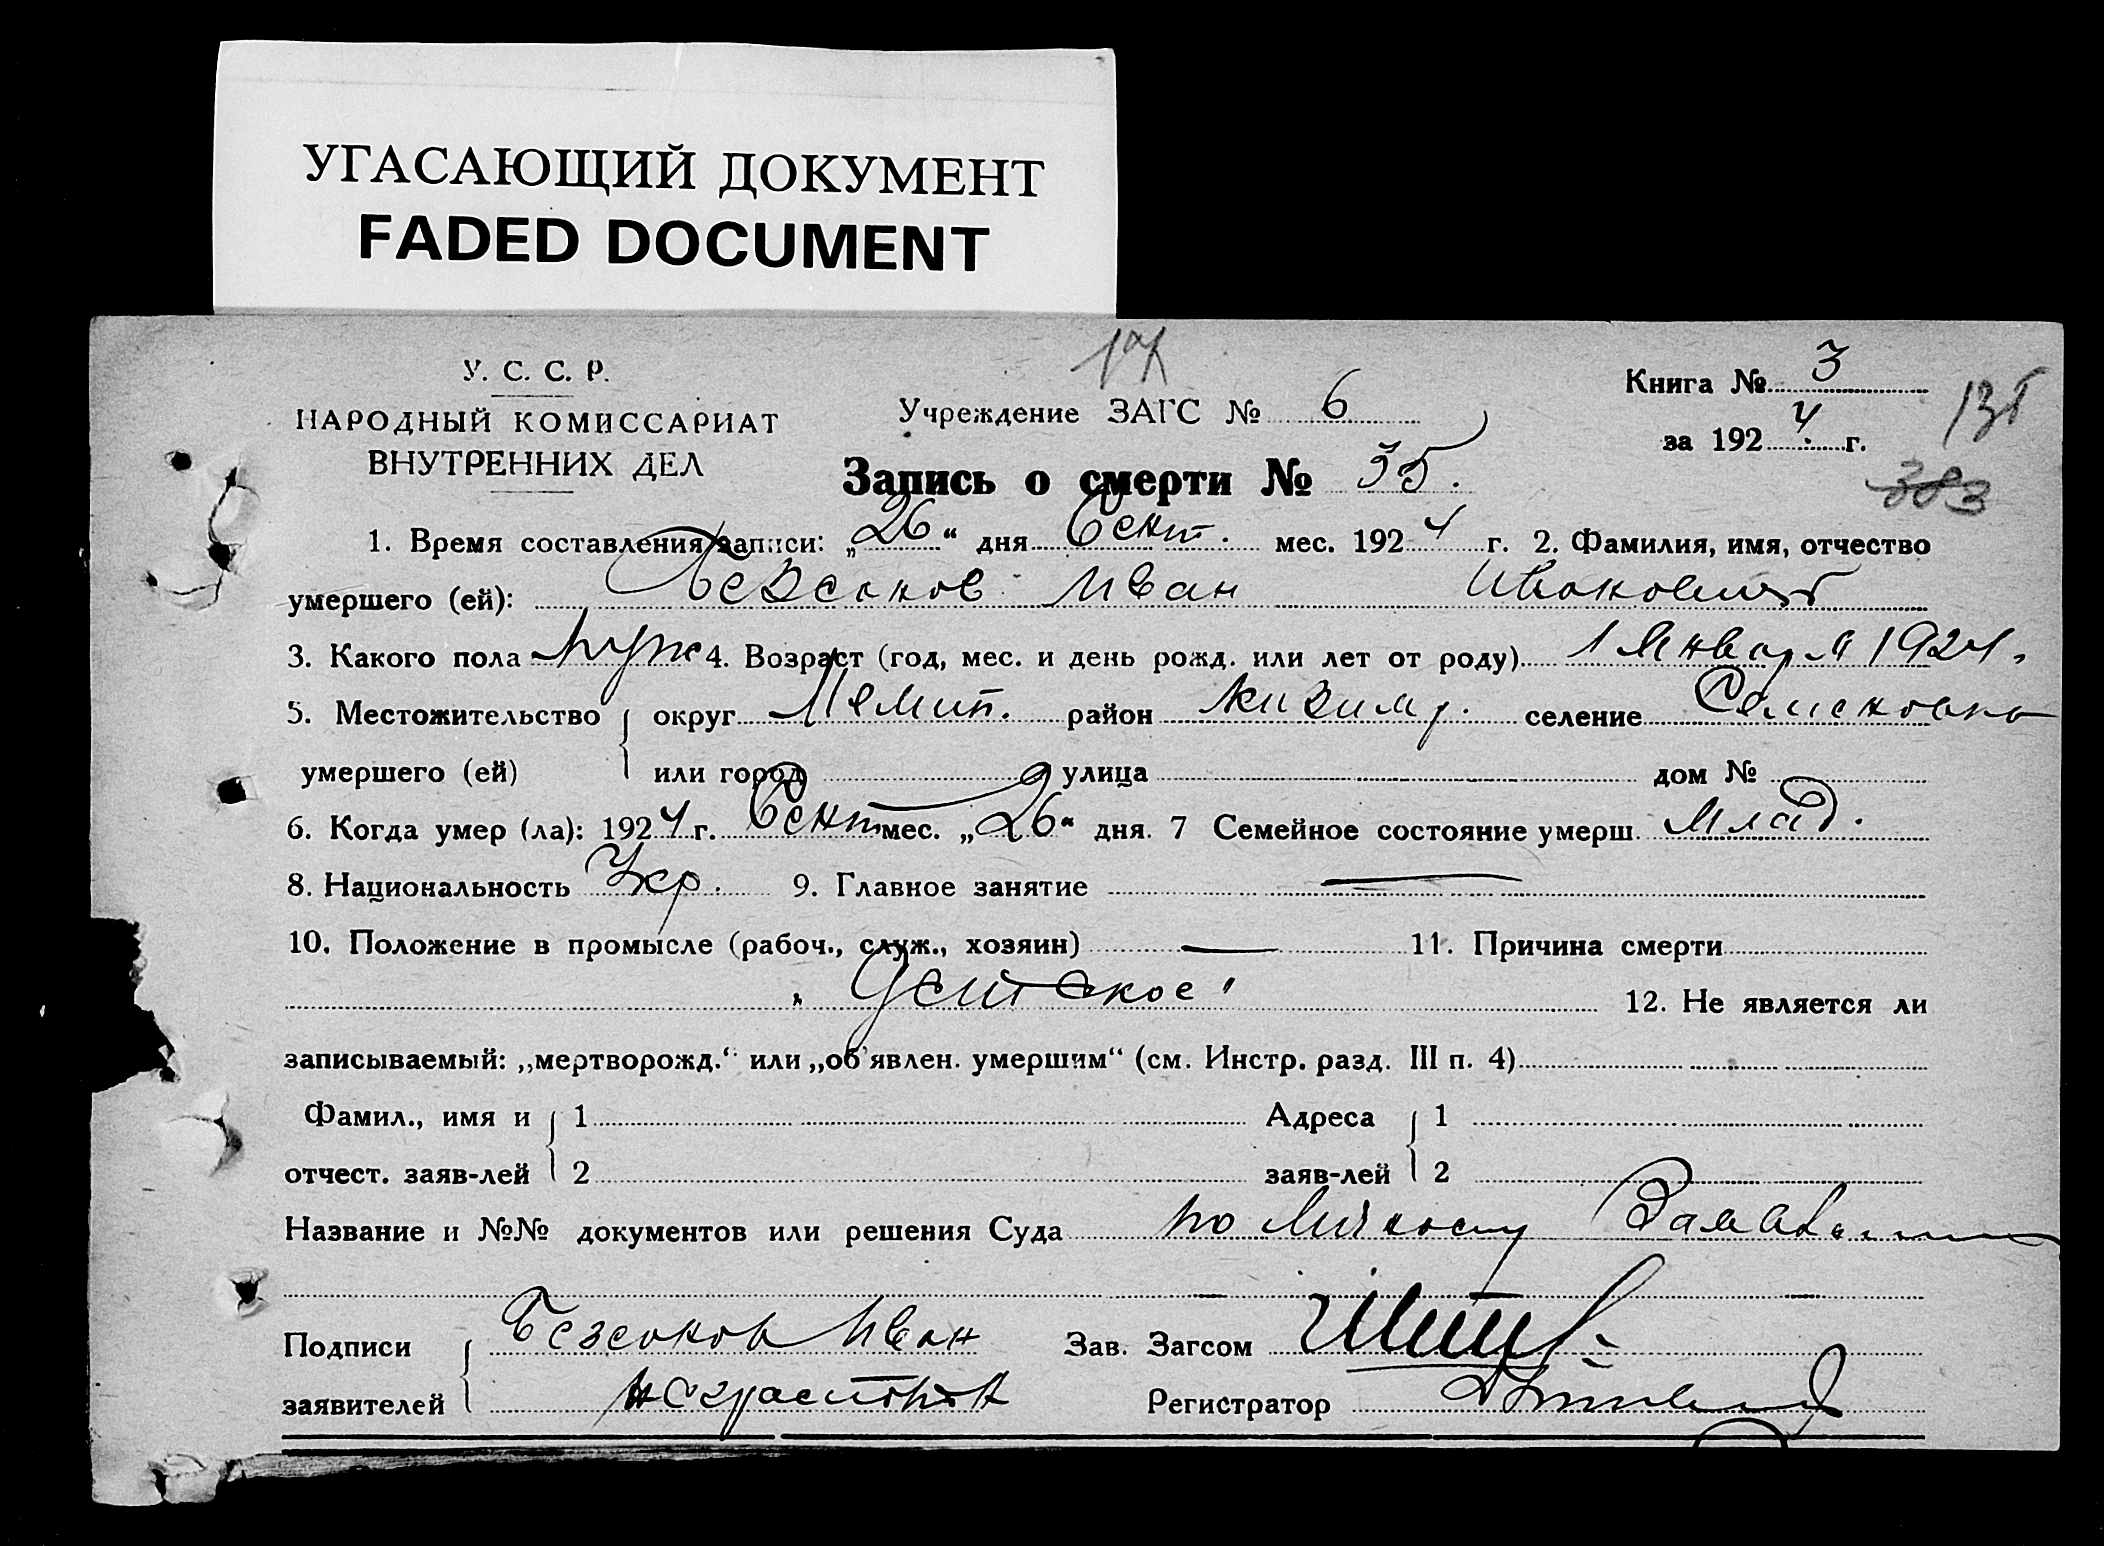 УГАСАЮЩИЙ ДОКУМЕНТ
FADED DOCUMENT
У. С. С. Р.
НАРОДНЫЙ КОМИССАРИАТ
ВНУТРЕННИХ ДЕЛ
Учреждение ЗАГС № 6
Запись о смерти № 35.
Книга № 3
за 1924 г.
383
1. Время составления записи: „26“ дня Сент. мес. 1924 г. 2. Фамилия, имя, отчество
умершего (ей): Безсонов Иван Иванович
3. Какого пола муж 4. Возраст (год, мес. и день рожд. или лет от роду) 1 Января 1924.
5. Местожительство округ район селение
умершего (ей) или город улица дом №
6. Когда умер (ла): 1924 г. Сент мес. „26“ дня. 7 Семейное состояние умерш. млад.
8. Национальность Укр. 9. Главное занятие —
10. Положение в промысле (рабоч., служ., хозяин) — 11. Причина смерти
Детское 12. Не является ли
записываемый: „мертворожд.“ или „об'явлен. умершим“ (см. Инстр. разд. III п. 4)
Фамил., имя и 1 Адреса 1
отчест. заяв-лей 2 заяв-лей 2
Название и №№ документов или решения Суда по личному
Подписи Безсонов Иван Зав. Загсом
заявителей Регистратор